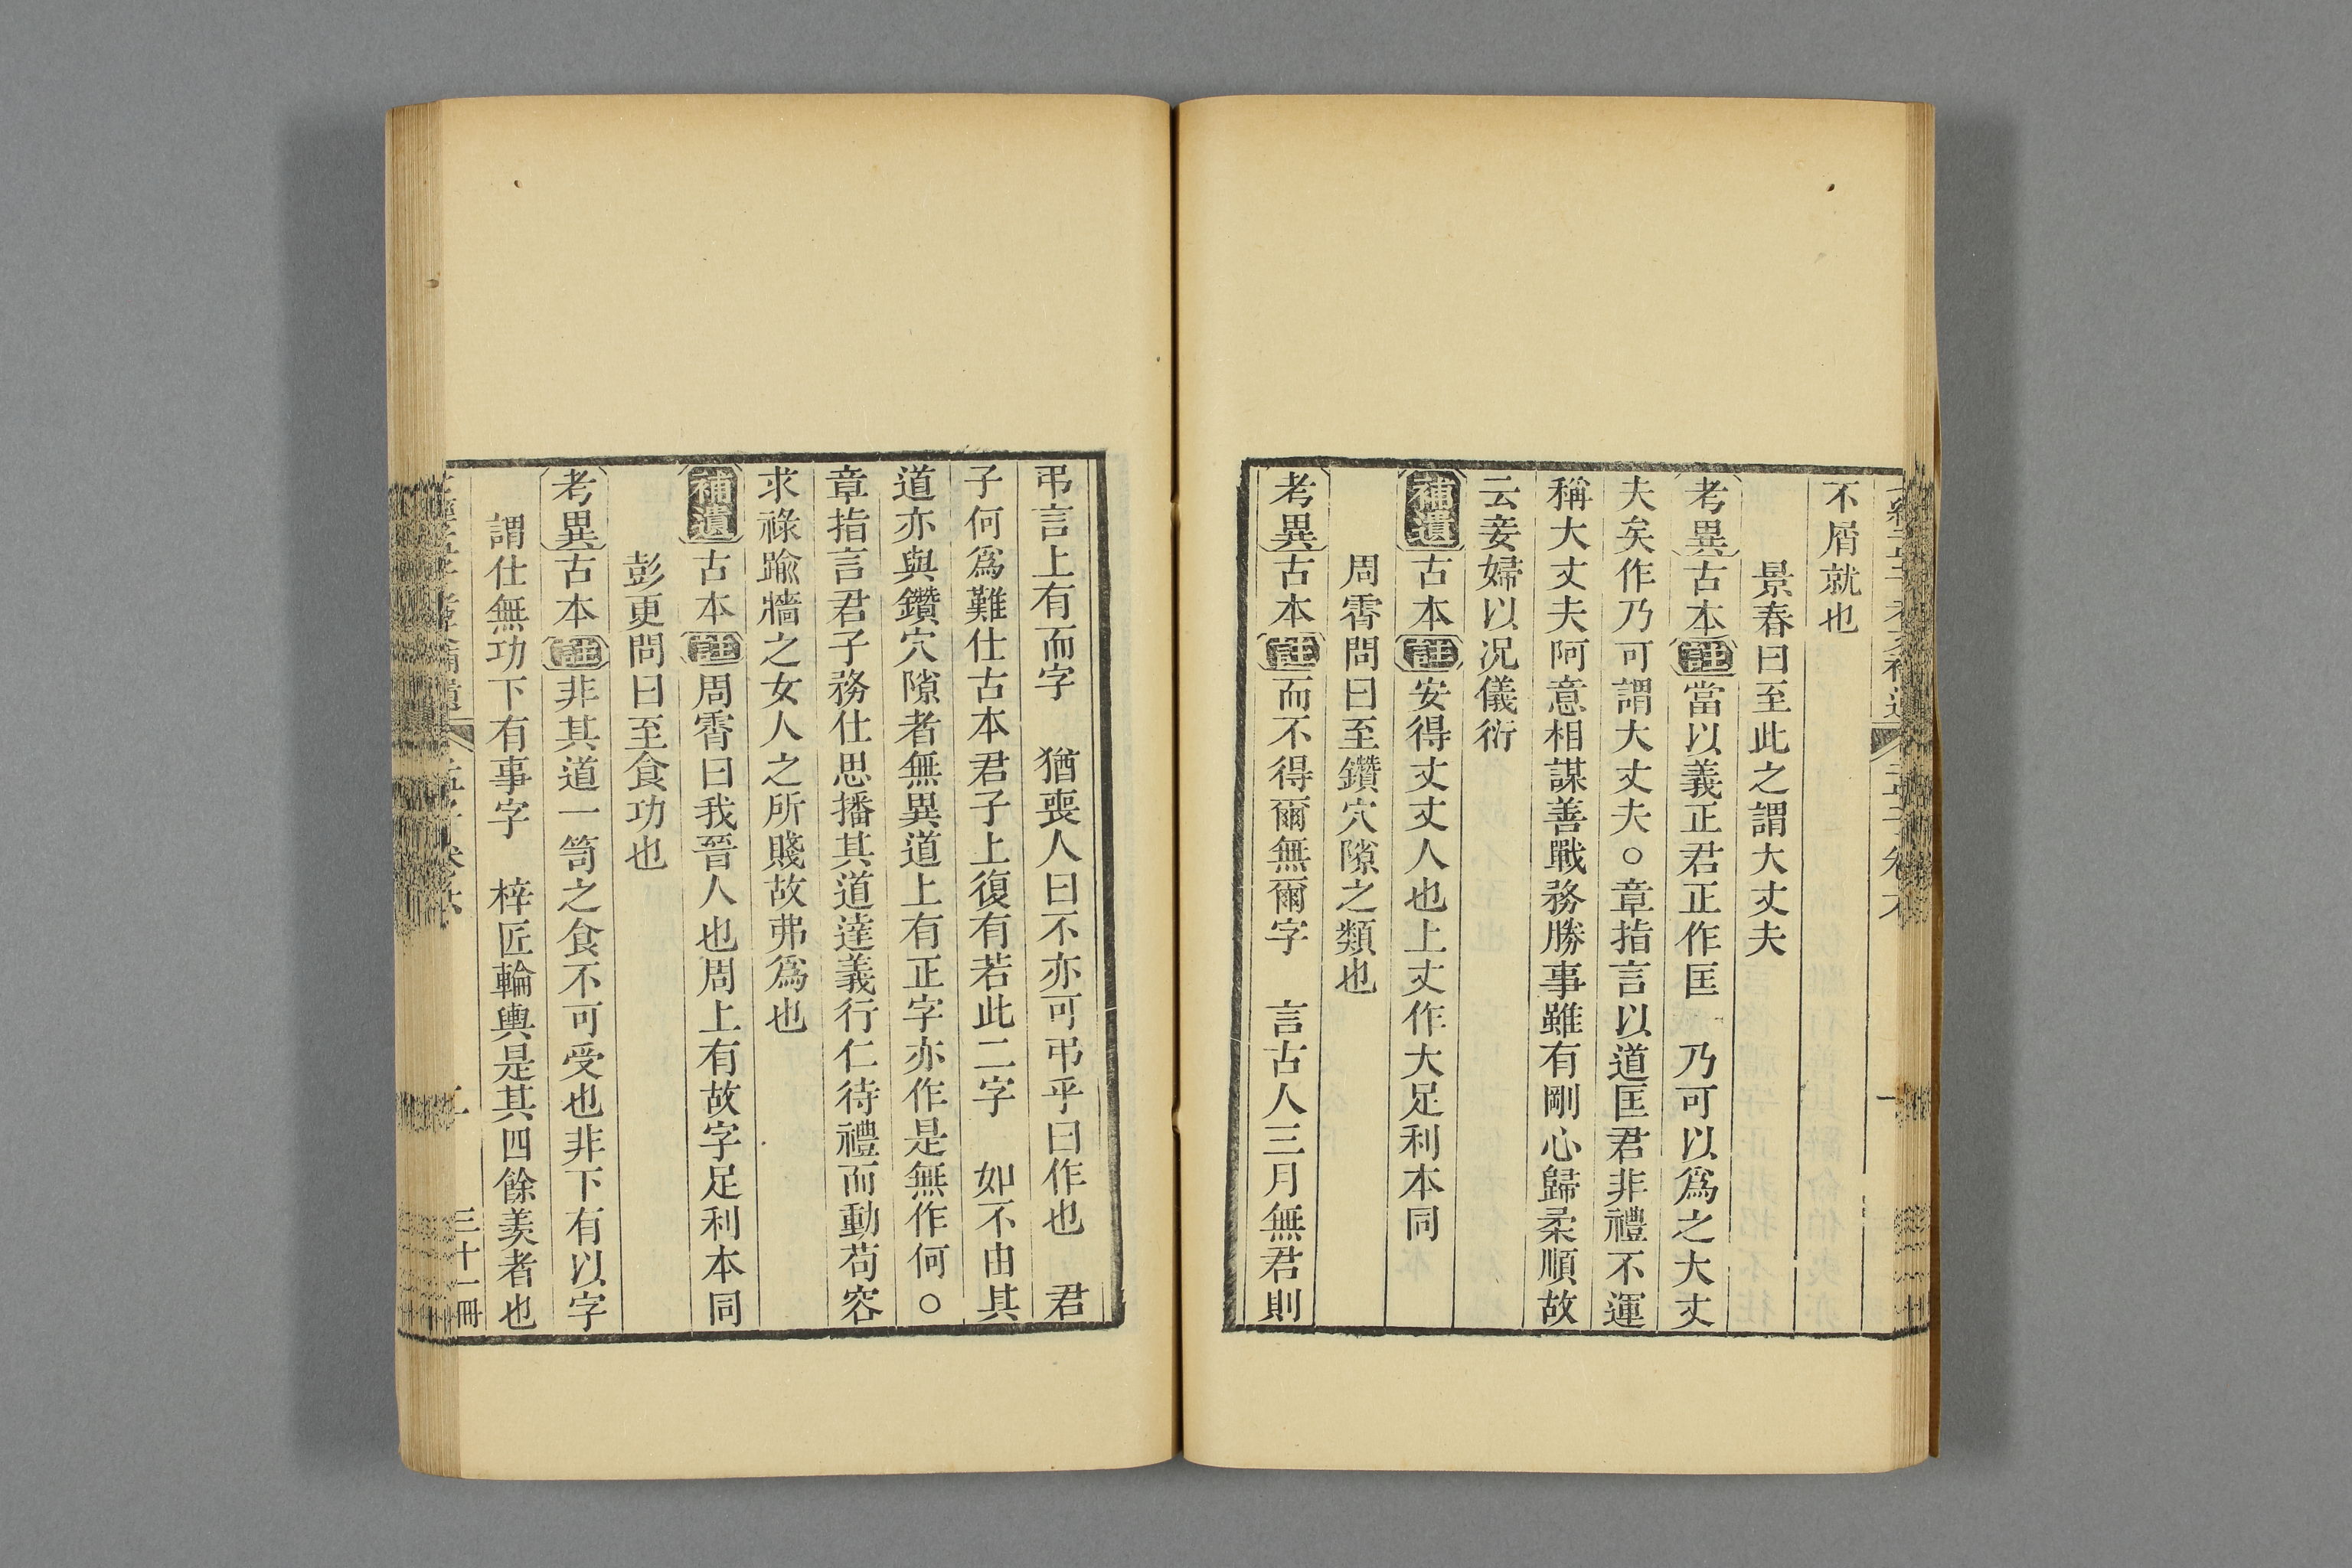 不屑就也
景春曰至此之謂大丈夫
考異古本註當以義正君正作匡　乃可以爲之大丈
夫矣作乃可謂大丈夫○章指言以道匡君非禮不運
稱大丈夫阿意相謀善戰務勝事雖有剛心歸柔順故
云妾婦以況儀衍
補遺古本註安得丈丈人也上丈作大足利本同
周霄問曰至鑽穴隙之類也
考異古本註而不得爾無爾字　言古人三月無君則
弔言上有而字　猶喪人曰不亦可弔乎曰作也　君
子何爲難仕古本君子上復有若此二字　如不由其
道亦與鑽穴隙者無異道上有正字亦作是無作何○
章指言君子務仕思播其道達義行仁待禮而動苟容
求祿踰牆之女人之所賤故弗爲也
補遺古本註周霄曰我晉人也周上有故字足利本同
彭更問曰至食功也
考異古本註非其道一笥之食不可受也非下有以字
謂仕無功下有事字　梓匠輪輿是其四餘羨者也
三十一冊